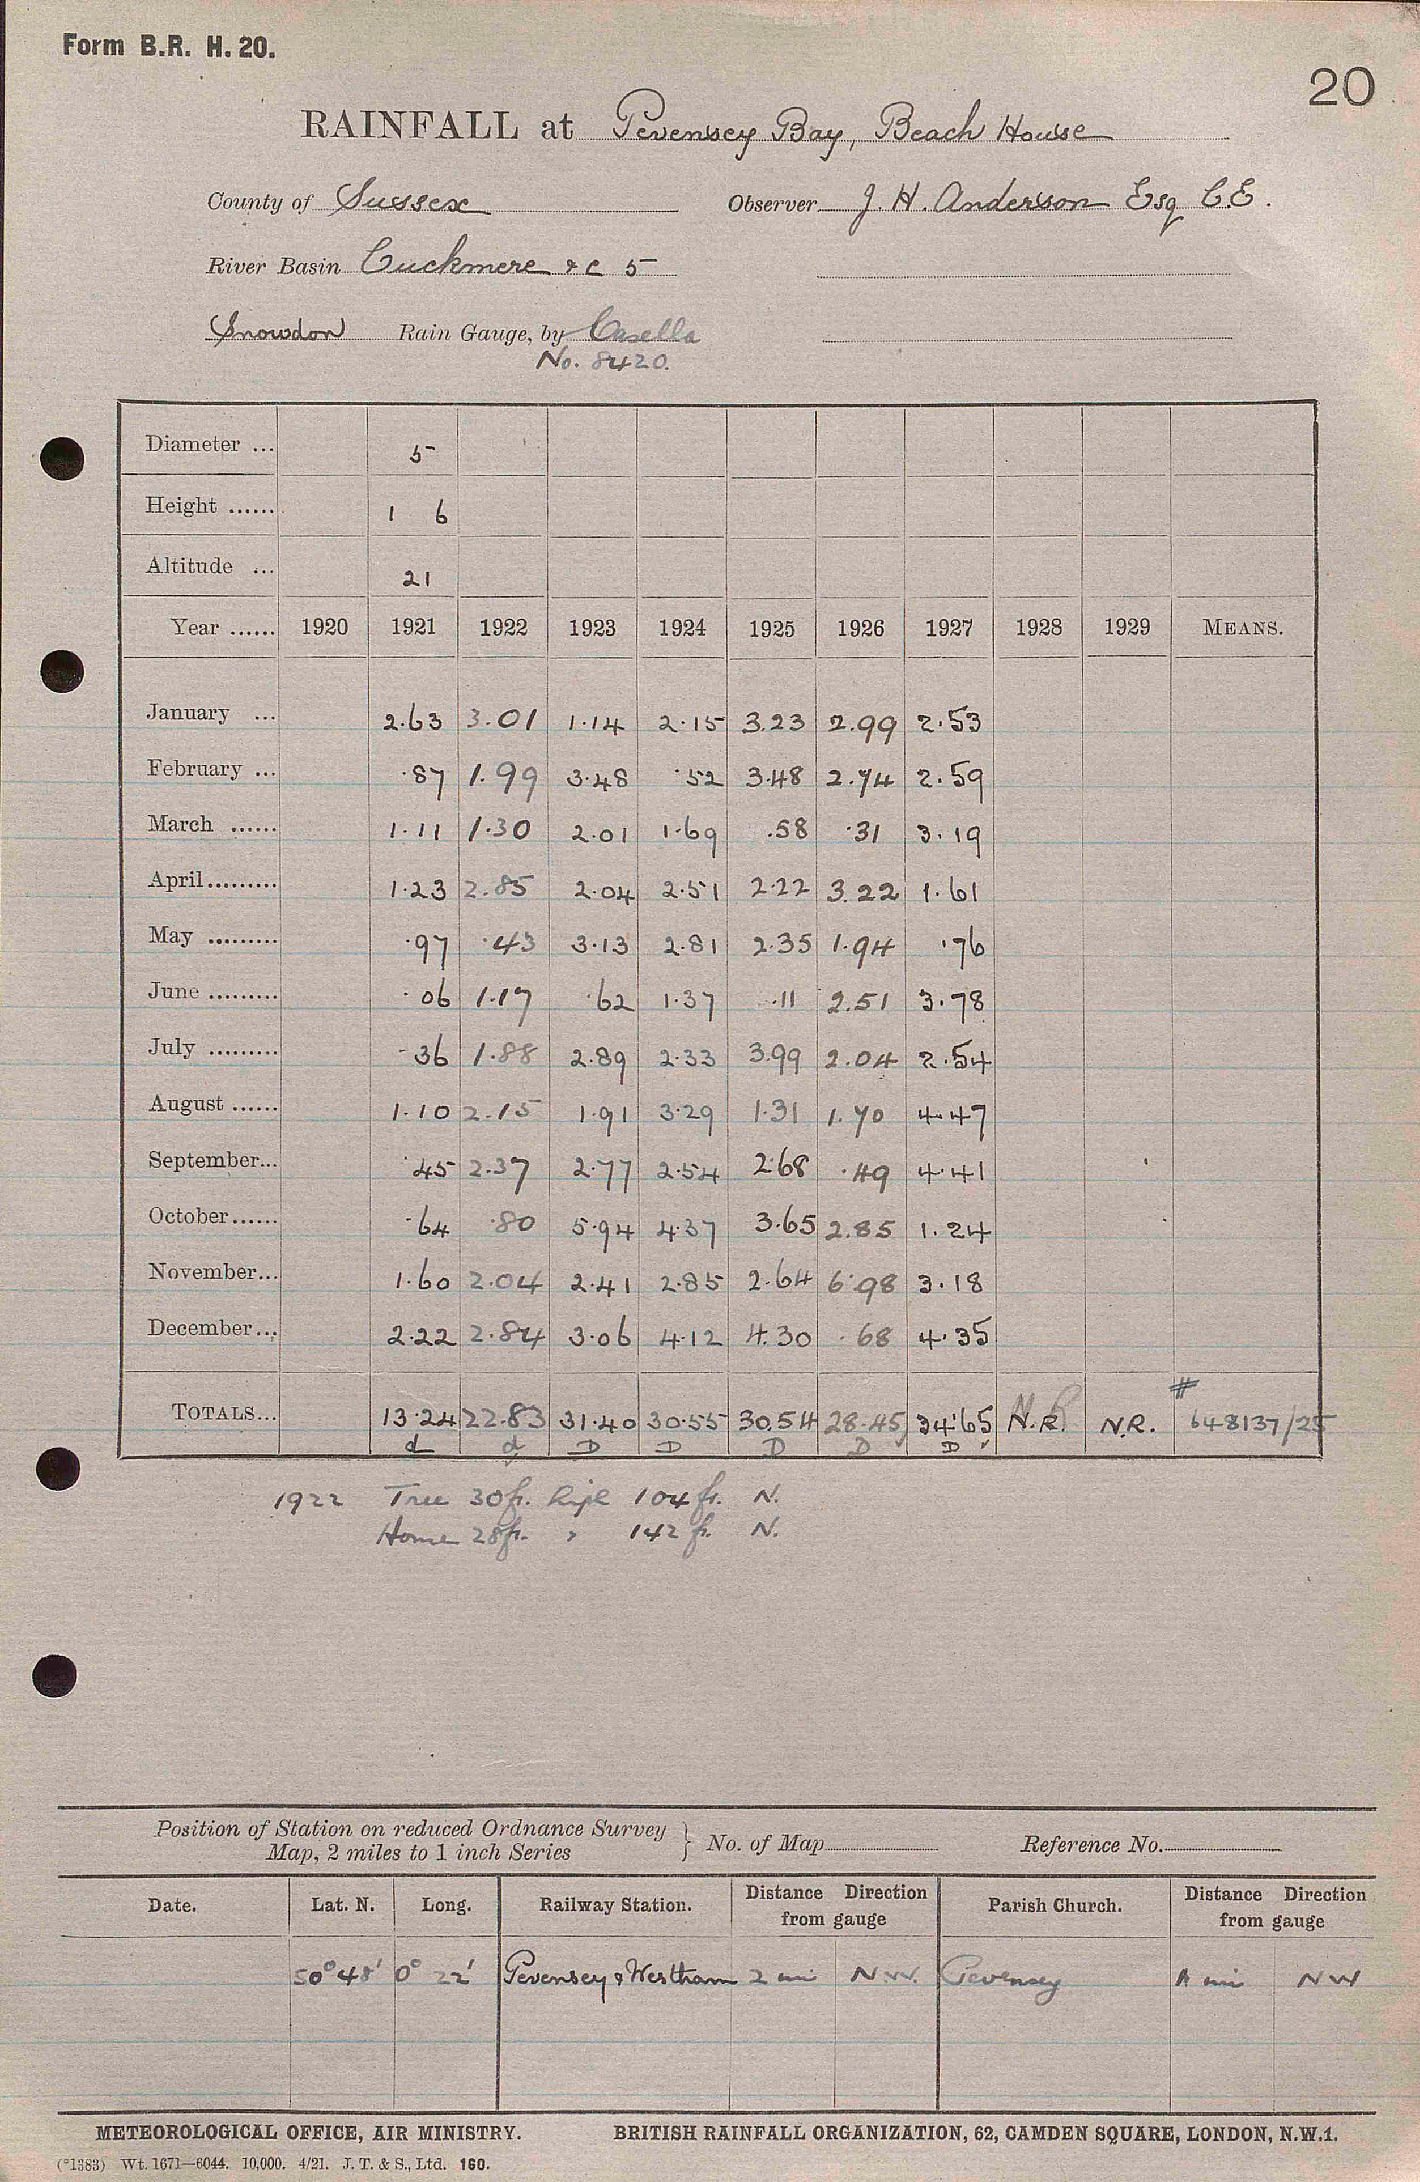 Form B.R. H. 20.
20
RAINFALL at Pevensey Bay, Beach House
County of Sussex Observer J. H. Anderson Esq C.E.
River Basin Cuckmere &c 5
Snowdon Rain Gauge, by Casella
No. 8420.
Diameter ... 5
Height ...... 1 6
Altitude ... 21
Year ...... 1920 1921 1922 1923 1924 1925 1926 1927 1928 1929 MEANS.
January ... 2.63 3.01 1.14 2.15 3.23 2.99 2.53
February ... .87 1.99 3.48 .52 3.48 2.74 2.59
March ...... 1.11 1.30 2.01 1.69 .58 .31 3.19
April......... 1.23 2.85 2.04 2.51 2.22 3.22 1.61
May ......... .97 .43 3.13 2.81 2.35 1.94 .76
June ......... .06 1.17 .62 1.37 .11 2.51 3.78
July ......... .36 1.88 2.89 2.33 3.99 2.04 2.54
August ...... 1.10 2.15 1.91 3.29 1.31 1.70 4.47
September... .45 2.37 2.77 2.54 2.68 .49 4.41
October...... .64 .80 5.94 4.37 3.65 2.85 1.24
November... 1.60 2.04 2.41 2.85 2.64 6.98 3.18
December... 2.22 2.84 3.06 4.12 4.30 .68 4.35
#
TOTALS... 13.24 22.83 31.40 30.55 30.54 28.45 34.65 N.R. N.R. 648137/25
d d D D D D D
1922 Tree 30ft. high 104ft. N.
House 28ft. " 142 ft. N.
Position of Station on reduced Ordnance Survey
Map, 2 miles to 1 inch Series } No. of Map Reference No.
Date. Lat. N. Long. Railway Station. Distance Direction from gauge Parish Church. Distance Direction from gauge
50° 48' 0° 22' Pevensey & Westham 2 mi N.W. Pevensey mi NW
METEOROLOGICAL OFFICE, AIR MINISTRY. BRITISH RAINFALL ORGANIZATION, 62, CAMDEN SQUARE, LONDON, N.W.1.
(*1383) Wt. 1671—6044. 10,000. 4/21. J. T. & S., Ltd. 160.